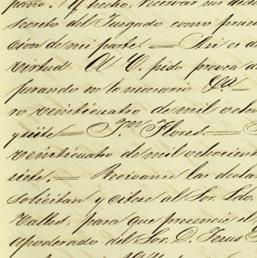 parro. Y hecho,
secreto del Juzgado como
cion de mi parte. — Asi es de
virtud A V. pido provea d
jurando en lo necesario
ro veinticuatro de mil ocho
y siete — Flores. —
veinticuatro de mil ochocien
siete. — Recivanse las declar
solicitan y citese al Sor. Ldo.
Valles, para que presencie el
apoderado del Sor. D. Jesus